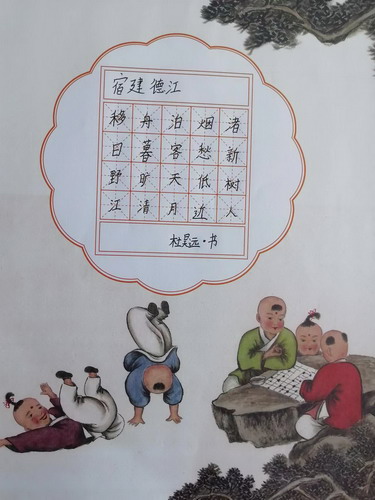 宿建德江
移舟泊烟渚
日暮客愁新
野旷天低树
江清月近人
杜昊远·书